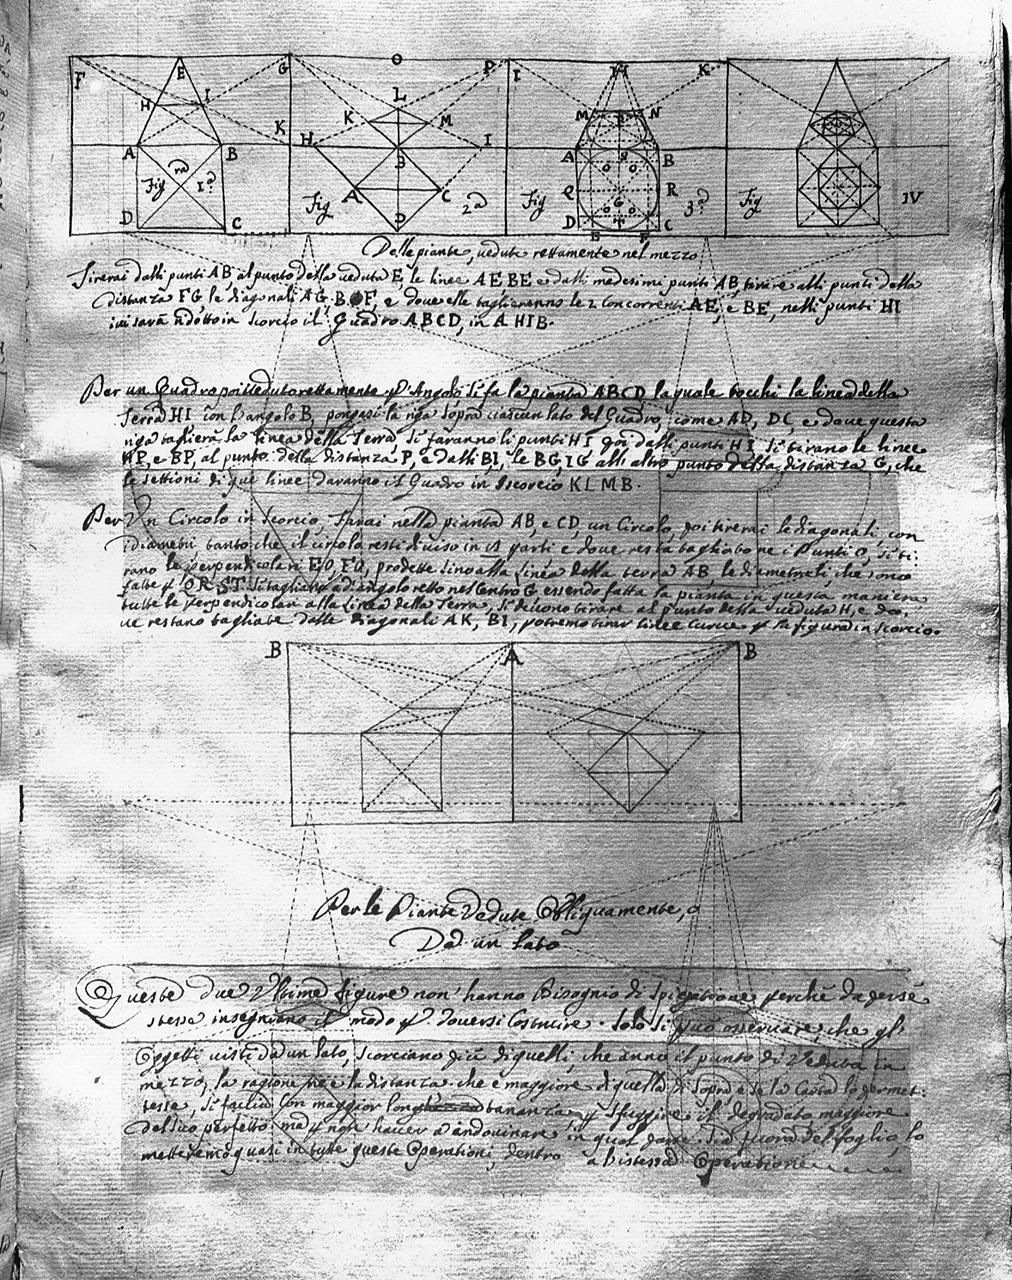 F E G O P I H K
H I K L M M N
A B H K B I A B
Fig.ra 1.a Fig 2a Fig Q R 3.a Fig IV
D C A C D C
D E F
Delle piante, vedute rettamente nel mezzo
Tirerai dalli punti AB, al punto della veduta E, le linee AE, BE e dalli medesimi punti AB, tirare alli punti della
distanza FG, le diagonali AG, B.F, e dove esse taglieranno le 2 Concorrenti AE, e BE, nelli punti HI
ivi sarà ridotto in scorcio il Quadro ABCD, in A HIB.
Per un Quadro poi veduto rettamente p l'Angolo si fa la pianta ABCD la quale tocchi la linea della
Terra HI con l'angolo B, pongasi la riga sopra ciascun lato del Quadro, come AD, DC, e dove questa
riga taglierà la linea della Terra, si faranno li punti HI, poi dalli punti HI si tirano le linee
HP, e BP, al punto della distanza P, e dalli BI, le BG, IG all altro punto della distanza G, che
le settioni di que linee daranno il Quadro in Iscorcio KLMB.
Per Un Circolo in scorcio, Farai nella pianta AB, e CD, un Circolo, poi tirerai le diagonali con
i diametri tanto che il circolo resti diviso in parti e dove resta tagliato ne i Punti O, si ti:
rano le perpendicolari EO, FO, prodotte sino alla Linea della terra AB, le diametrali che sono
fatte p QR, ST si tagliano ad angolo retto nel Centro G essendo fatta la pianta in questa maniera
tutte le perpendicolari alla Linea della Terra, si devono tirare al punto della veduta H, e do:
ve restano tagliate dalle diagonali AK, BI, potremo tirar linee curve p la figura in scorcio.
B A B
Per le Piante Vedute Obliquamente, o
Da un lato
Queste due Ultime figure non hanno Bisognio di spiegatione perchè da per sè
stesse insegniano il modo p doversi Costruire. Solo si può osservare, che gl'
Oggetti visti da un lato, scorciano più di quelli, che anno il punto di Veduta in
mezzo, la ragione ne è la distanza che è maggiore di quella di sopra, e se la Carta lo permet:
tesse, si faria con maggior lontananza p sfuggire il degradato maggiore
del suo perfetto, ma p non haver a andovinare in quel dove sia fuora del foglio, lo
metteremo quasi in tutte queste Operationi, dentro a l'istessa Operatione